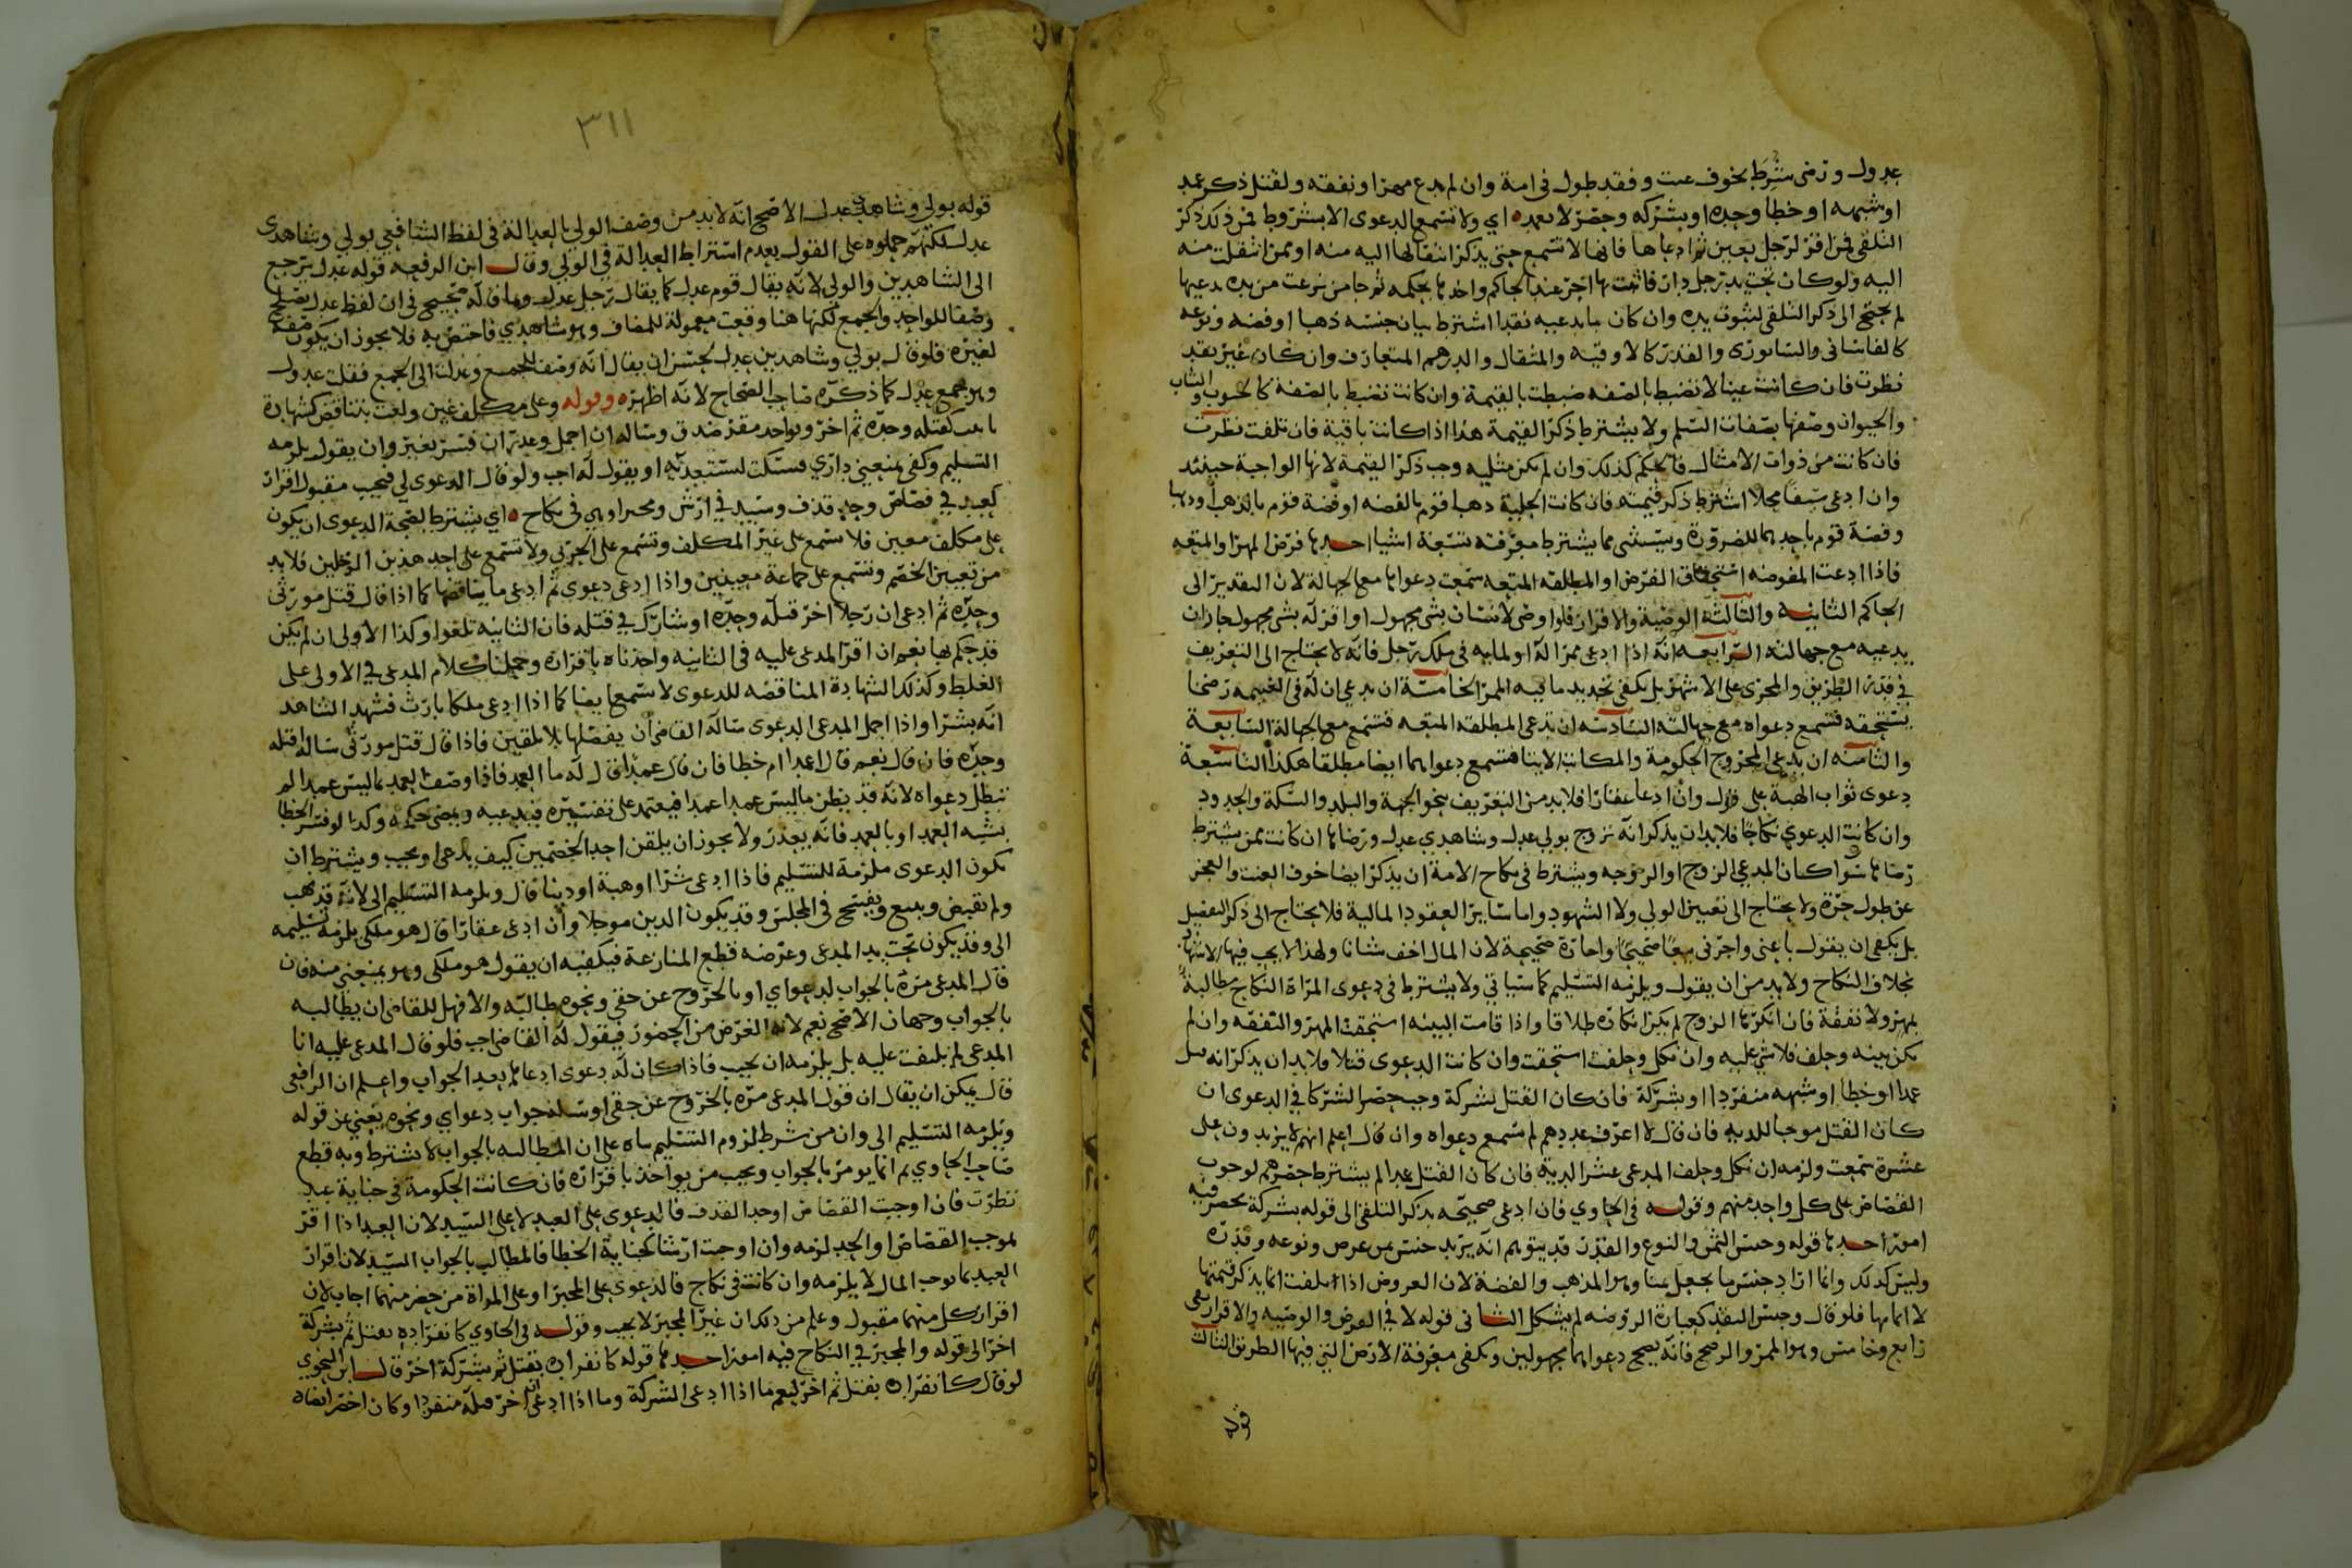 عدول ورضى شرط بخوف عنت وفقد طول في امة وان لم يدع مهرا ونفقه ولقتل ذكر عمد
او شبهه او خطا وحده او بشركه وحصر لا بعمد اي ولا تسمع الدعوى الا بشروط فمن ذلك ذكر
التلقي فمن اقر لرجل بعين ثم ادعاها فانها لا تسمع حتى يذكر انتقالها اليه منه او ممن انتقلت منه
اليه ولو كان تحت يد رجل دار فاثبتها اخر عند الحاكم واخذها بحكمه ثم جا من نزعت من يده يدعيها
لم يحتج الى ذكر التلقي لثبوت يده وان كان ما يدعيه نقدا اشترط بيان جنسه ذهبا او فضه ونوعه
كالقاشاني والسابوري والقدر كالاوقيه والمثقال والدرهم المتعارف وان كان غير نقد
نظرت فان كانت عينا لا تضبط بالصفه ضبطت بالقيمة وان كانت تضبط بالصفة كالحبوب والثياب
والحيوان وصفها بصفات السلم ولا يشترط ذكر القيمة هذا اذا كانت باقية فان تلفت نظرت
فان كانت من ذوات الامثال فالحكم كذلك وان لم تكن مثليه وجب ذكر القيمة لانها الواجبة حينئذ
وان ادعى سيفا محلا اشترط ذكر قيمته فان كانت الحلية ذهبا قوم بالفضه او فضة قوم بالذهب او ذهبا
وفضة قوم باحدهما للضرورة ويستثنى مما يشترط معرفته تسعة اشيا احدها فرض المهر والمتعه
فاذا ادعت المفوضه استحقاق الفرض او المطلقه المتعه سمعت دعواها مع الجهالة لان التقدير الى
الحاكم الثانيه والثالثة الوصية والاقرار فلو اوصى لانسان بشي مجهول او اقر له بشي مجهول جاز ان
يدعيه مع جهالته الرابعه انه اذا ادعى ممرا له او لمايه في ملك رجل فانه لا يحتاج الى التعريف
في قدر الطريق والمجرى على الاشهر بل يكفي تحديد ما فيه الممر الخامسة ان يدعي ان له في الغنيمه رضخا
يستحقه فتسمع دعواه مع جهالته السادسه ان تدعي المطلقه المتعه فتسمع مع الجهالة السابعة
والثامنه ان يدعي المجروح الحكومة والمكاتب الايتا فتسمع دعواهما ايضا مطلقا هكذا التاسعة
دعوى ثواب الهبة على قول وان ادعا عقارا فلا بد من التعريف بنحو الجهة والبلد والسكة والحدود
وان كانت الدعوى نكاحا فلا بد ان يذكر انه تزوج بولي عدل وشاهدي عدل ورضاها ان كانت ممن يشترط
رضاها سوا كان المدعي الزوج او الزوجه ويشترط في نكاح الامة ان يذكر ايضا خوف العنت والعجز
عن طول حرة ولا يحتاج الى تعيين الولي ولا الشهود واما ساير العقود المالية فلا يحتاج الى ذكر التفصيل
بل يكفي ان يقول باعني واجرني بيعا صحيحا واجارة صحيحة لان المال اخف شانا ولهذا لا يجب فيها الاشهاد
بخلاف النكاح ولا بد من ان يقول ويلزمه التسليم كما سياتي ولا يشترط في دعوى المراة النكاح مطالبة
بمهر ولا نفقة فان انكرها الزوج لم يكن انكاره طلاقا واذا قامت البينه استحقت المهر والنفقه وان لم
تكن بينه وحلف فلا شي عليه وان نكل وحلفت استحقت وان كانت الدعوى قتلا فلا بد ان يذكر انه قتل
عمدا او خطا او شبهه منفردا او بشركة فان كان القتل بشركة وجب حصر الشركا في الدعوى ان
كان القتل موجبا للديه فان قال لا اعرف عددهم لم تسمع دعواه وان قال اعلم انهم لا يزيدون على
عشرة سمعت ولزمه ان نكل وحلف المدعي عشر الدية فان كان القتل عمدا لم يشترط حصرهم لوجوب
القصاص على كل واحد منهم وقوله في الحاوي فان ادعى صحيحه بذكر التلقي الى قوله بشركة بحصر فيه
امور احدها قوله وجنس الثمن والنوع والقدر قد يتوهم انه يريد جنس من عرض ونوعه وقدره
وليس كذلك وانما اراد جنس ما يجعل ثمنا وهو الذهب والفضة لان العروض اذا تلفت انما يذكر قيمتها
لا اثمانها فلو قال وجنس النقد كعبارة الروضه لم يشكل الثاني قوله لا في الفرض والوصيه والاقرار بقي
رابع وخامس وهو الممر والرضخ فانه يصح دعواهما مجهولين وتكفي معرفة الارض التي فيها الطريق الثالث
قوله
٣١١
قوله بولي وشاهدي عدل الاصح انه لا بد من وصف الولي بالعدالة في لفظ الشافعي بولي وشاهدي
عدل لكنهم حملوه على القول بعدم اشتراط العدالة في الولي وقال ابن الرفعه قوله عدل يرجع
الى الشاهدين والولي لانه يقال قوم عدل كما يقال رجل عدل وما قاله صحيح في ان لفظ عدل يصلح
وصفا للواحد والجمع لكنها هنا وقعت معمولة للمضاف وهو شاهدي فاختص به فلا يجوز ان يكون صفة
لغيره فلو قال بولي وشاهدين عدل لحسن ان يقال انه وصف للجمع وعدلت الى الجمع فقلت عدول
وهو جمع عدل كما ذكره صاحب الصحاح لانه اظهر وقوله وعلى مكلف عين ولغت بتناقض كشهادة
بان كقتله وحده ثم اخر ويواخد مقر صدق وساله ان اجمل وعذر ان فسر بغير وان يقول يلزمه
التسليم وكفى يمنعني داري فسكت لتستعيديه او يقول له اجب ولو قال الدعوى لي فيجيب مقبول اقرار
كعبد في قصاص وحد قذف وسيد في ارش ومجبر او هي في نكاح اي يشترط لصحة الدعوى ان يكون
على مكلف معين فلا تسمع على غير المكلف وتسمع على الحربي ولا تسمع على احد هذين الرجلين فلا بد
من تعيين الخصم وتسمع على جماعة معينين واذا ادعى دعوى ثم ادعى ما يناقضها كما اذا قال قتل مورثي
وحده ثم ادعى ان رجلا اخر قتله وحده او شارك في قتله فان الثانيه تلغوا وكذا الاولى ان لم يكن
قد حكم بها نعم ان اقر المدعى عليه في الثانيه واخذناه باقراره وحملنا كلام المدعي في الاولى على
الغلط وكذلك الشهادة المناقضه للدعوى لا تسمع ايضا كما اذا ادعى ملكا بارث فشهد الشاهد
انه بشرا واذا اجمل المدعي الدعوى ساله القاضي ان يفصلها بلا تلقين فاذا قال قتل مورثي ساله اقتله
وحده فان قال نعم قال اعمدا ام خطا فان قال عمدا قال له ما العمد فاذا وصف العمد بما ليس عمدا لم
تبطل دعواه لانه قد يظن ما ليس عمدا عمدا فيعتمد على تفسيره فيدعيه ويمضي حكمه وكذا لو فسر الخطا
بشبه العمد او بالعمد فانه يعذر ولا يجوز ان يلقن احد الخصمين كيف يدعي او يجيب ويشترط ان
تكون الدعوى ملزمة للتسليم فاذا ادعى شرا او هبة او دينا قال ويلزمه التسليم الى لانه قد يهب
ولم تقبض ويبيع ويفسخ في المجلس وقد يكون الدين موجلا وان ادعى عقارا قال هو ملكي يلزمه تسليمه
الى وقد يكون تحت يد المدعي وغرضه قطع المنازعة فيكفيه ان يقول هو ملكي وهو يمنعني منه فان
قال المدعي مره بالجواب لدعواي او بالخروج عن حقي ونحوه طالبه والا فهل للقاضي ان يطالبه
بالجواب وجهان الاصح نعم لانه الغرض من الحضور فيقول له القاضي اجب فلو قال المدعى عليه انا
المدعي لم يلتفت عليه بل يلزمه ان يجيب فاذا كان له دعوى ادعاها بعد الجواب واعلم ان الرافعي
قال يمكن ان يقال ان قول المدعي مره بالخروج عن حقي او سله جواب دعواي ونحوه يغني عن قوله
ويلزمه التسليم الى وان من شرط لزوم التسليم بناه على ان المطالبه بالجواب لا تشترط وبه قطع
صاحب الحاوي ثم انما يومر بالجواب ويجيب من يواخذ باقراره فان كانت الحكومة في جناية عبد
نظرت فان اوجبت القصاص او حد القذف فالدعوى على العبد لا على السيد لان العبد اذا اقر
بموجب القصاص او الحد لزمه وان اوجبت ارشا كجناية الخطا فالمطالب بالجواب السيد لان اقرار
العبد بما يوجب المال لا يلزمه وان كانت في نكاح فالدعوى على المجبر او على المراة من حضر منهما اجاب لان
اقرار كل منهما مقبول وعلم من ذلك ان غير المجبر لا يجيب وقوله في الحاوي كانفراده بقتل ثم بشركة
اخر الى قوله والمجبر في النكاح فيه امور احدها قوله كانفراده بقتل ثم بشركة اخر قال ابن النحوي
لو قال كانفراده بقتل ثم اخر ليعم ما اذا ادعى الشركة وما اذا ادعى ان اخر قتله منفردا وكان اخصر ايضا